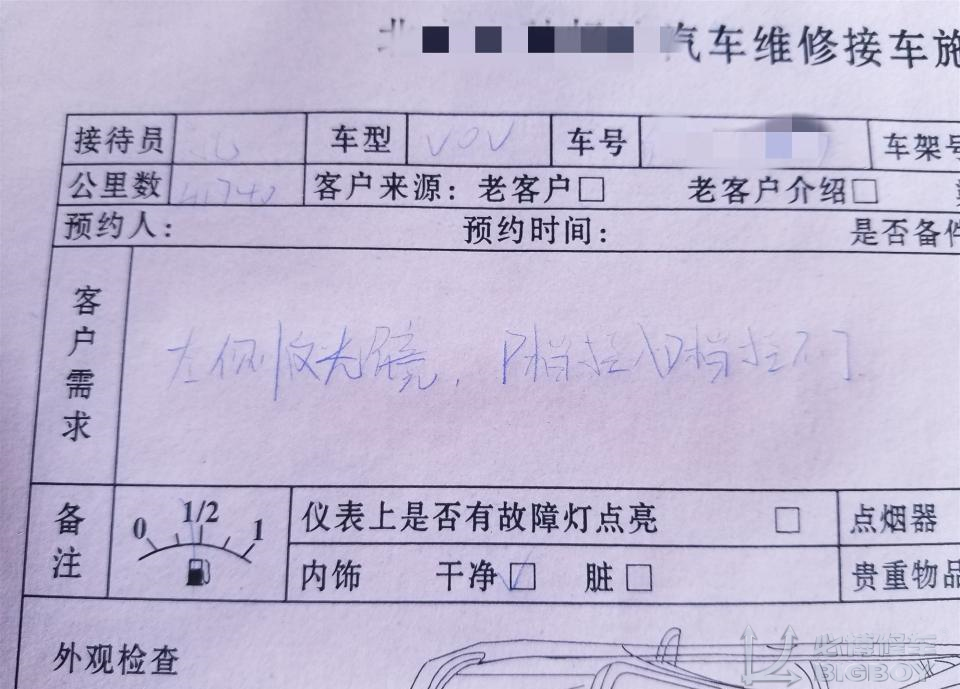 汽车维修接车施
接待员 车型 VOV 车号 车架号
公里数 41740 客户来源：老客户□ 老客户介绍□
预约人： 预约时间： 是否备件
客户需求
左侧 光镜，P档挂 D档挂不了
备注 0 1/2 1 仪表上是否有故障灯点亮 □ 点烟器
内饰 干净□ 脏□ 贵重物品
外观检查
BIGBOY